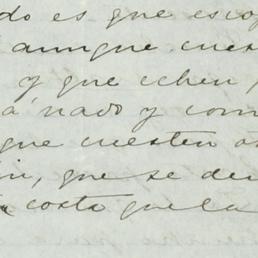 do es que esco
aunque cues
y que echen
á nado y com
que cuesten
que se de
costa que la